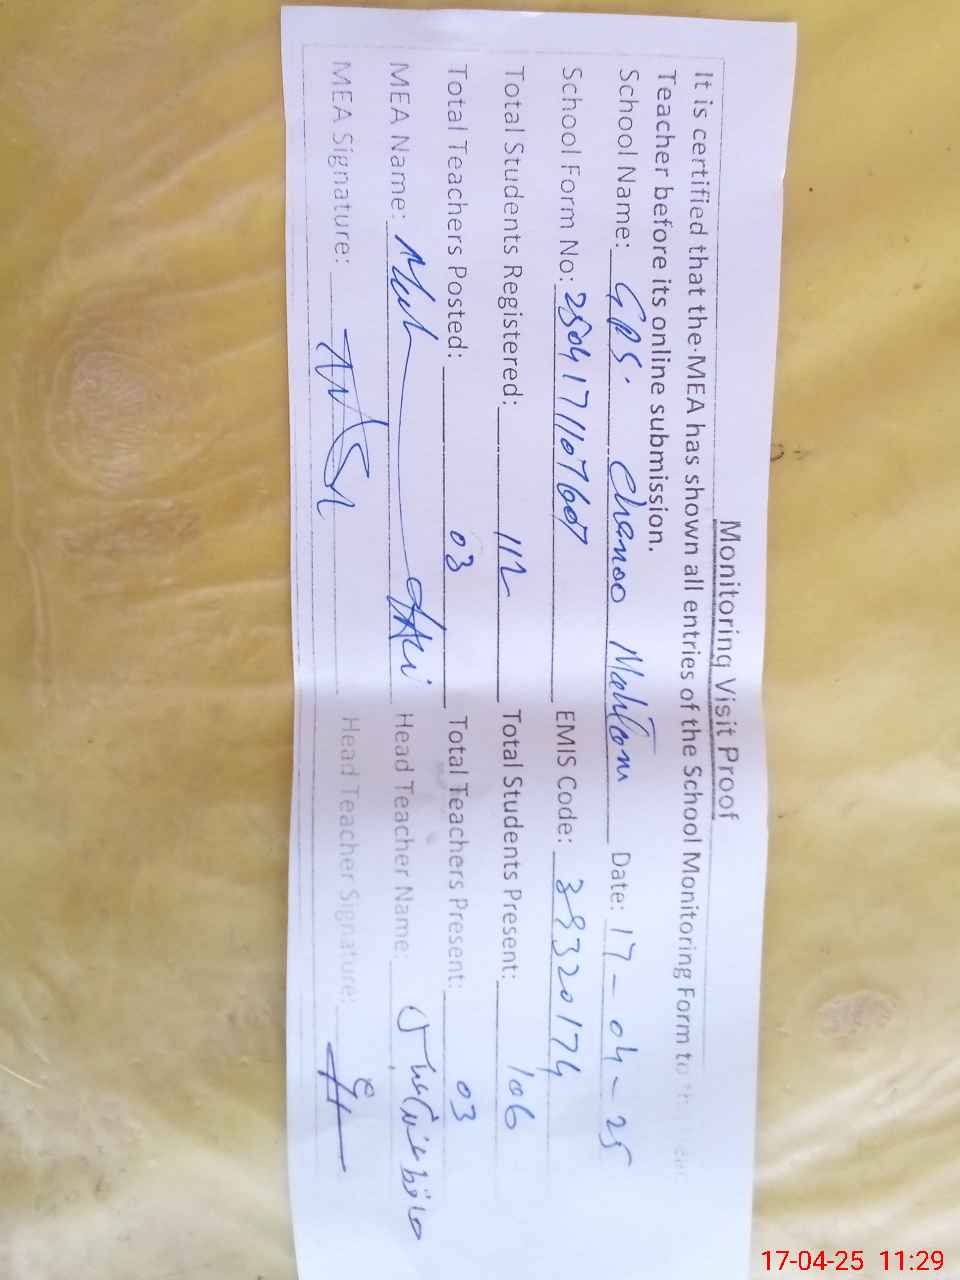 Monitoring Visit Proof
It is certified that the MEA has shown all entries of the School Monitoring Form to
Teacher before its online submission.
School Name: GPS. Chanoo Mahtam Date: 17-04-25
School Form No: 250417110760 EMIS Code: 39320174
Total Students Registered: 112 Total Students Present: 106
Total Teachers Posted: 03 Total Teachers Present: 03
MEA Name: Head Teacher Name: حافظ
MEA Signature: Head Teacher Signature:
17-04-25 11:29